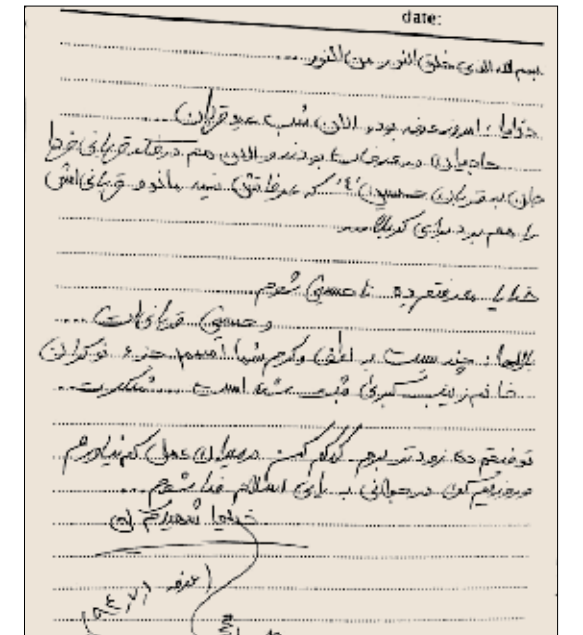 date:
بسم الله الذی خلق النور من النور
خدایا؛ امروز عرفه بود و الان شب عید قربان
حاجیان در عرفات بودند و الان هم در فکر قربانی فردا
جان به قربان حسین (ع) که عرفاتش نیمه ماند و قربانی‌اش
را هم برد برای کربلا ...
خدایا معرفتم ده تا حسینی شوم
و حسینی قربانی‌ات ....
بارالها؛ چندیست بر لطف و کرم شما اسمم جزء نوکران
خانم زینب کبری ثبت شده است ... شکرت ...
توفیقم ده زودتر بروم کمکم کن در میدان عمل کم نیاورم
و روزیم کن در جوانی برای اسلام فدا شوم ...
خدایا شهیدم کن
(عرفه ۹۴,۷,۱)